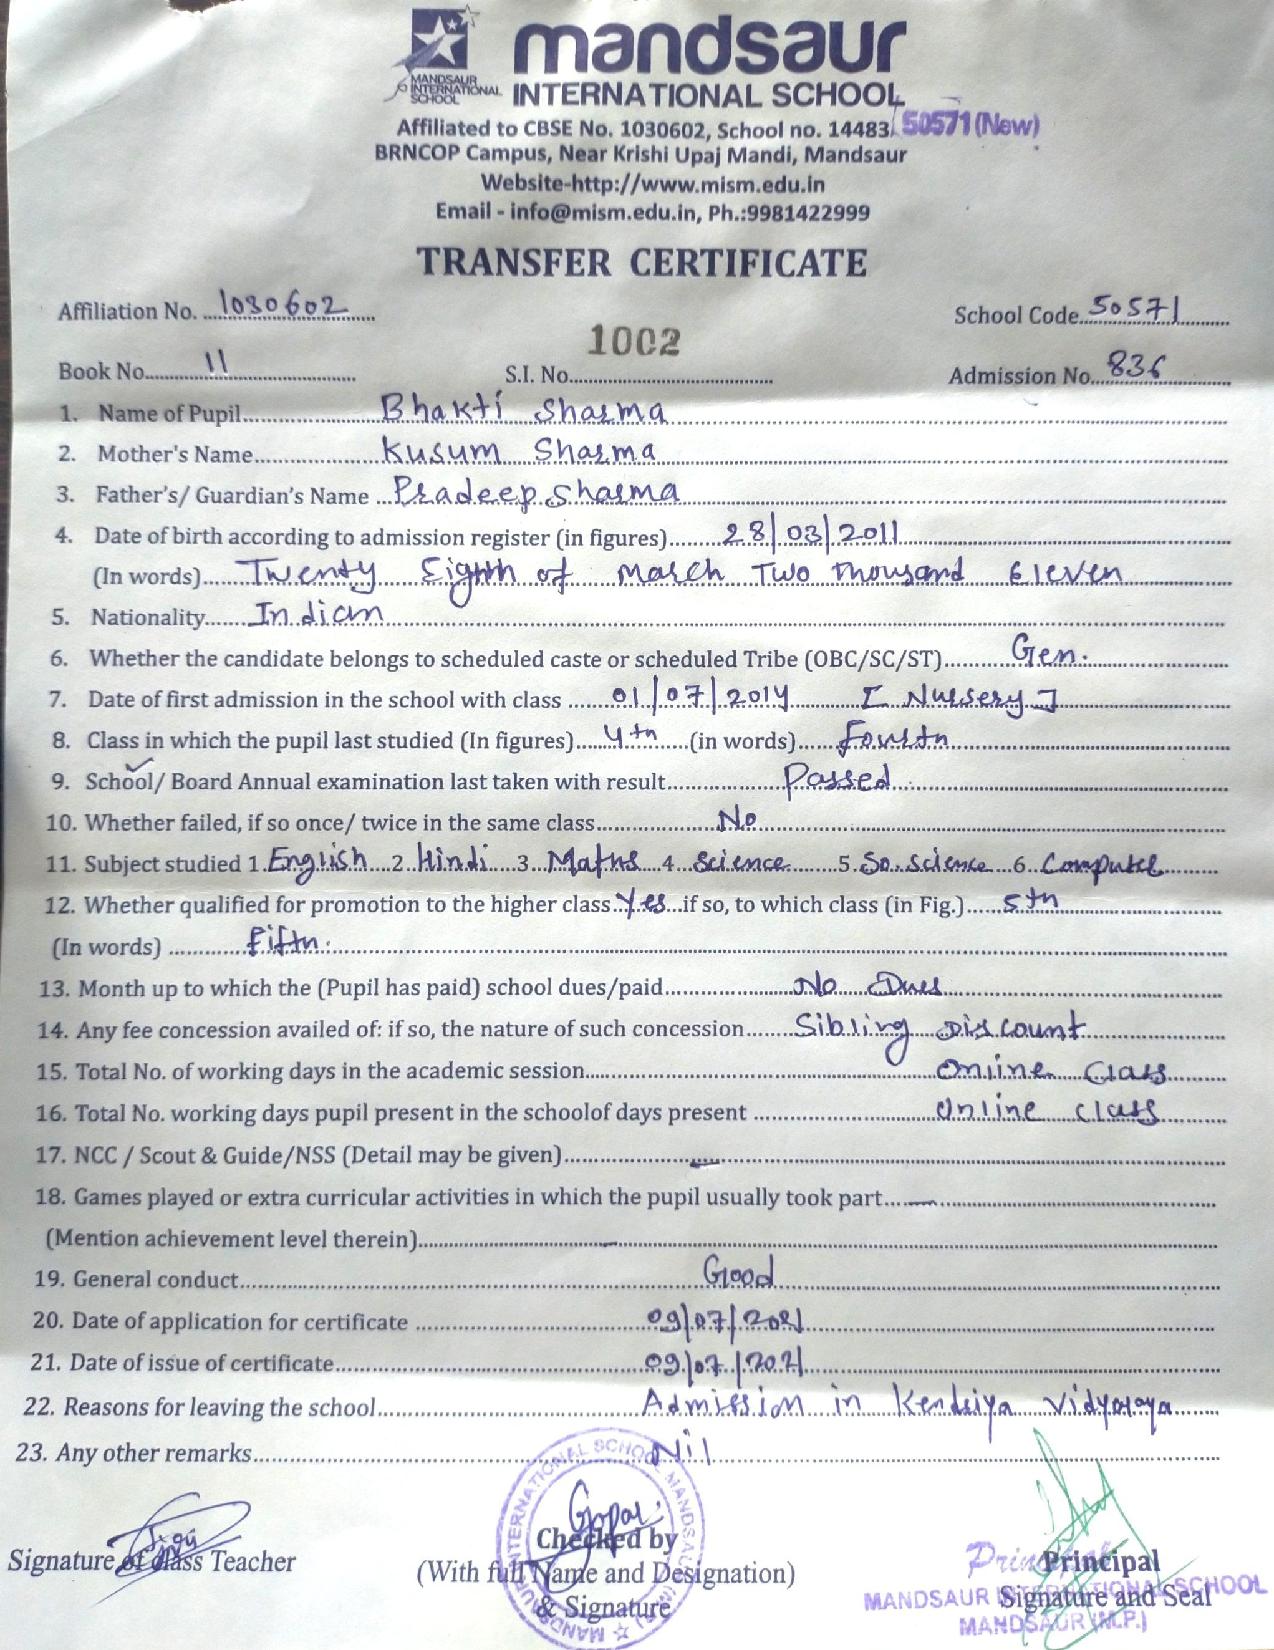 mandsaur
MANDSAUR
INTERNATIONAL
SCHOOL
INTERNATIONAL SCHOOL
Affiliated to CBSE No. 1030602, School no. 14483/ 50571 (New)
BRNCOP Campus, Near Krishi Upaj Mandi, Mandsaur
Website-http://www.mism.edu.in
Email - info@mism.edu.in, Ph.:9981422999
TRANSFER CERTIFICATE
Affiliation No. 1030602 School Code 50571
1002
Book No. 11 S.I. No. Admission No. 836
1. Name of Pupil Bhakti Sharma
2. Mother's Name Kusum Sharma
3. Father's/ Guardian's Name Pradeep Sharma
4. Date of birth according to admission register (in figures) 28/03/2011
(In words) Twenty Eighth of March Two thousand Eleven
5. Nationality Indian
6. Whether the candidate belongs to scheduled caste or scheduled Tribe (OBC/SC/ST) Gen.
7. Date of first admission in the school with class 01/07/2014 [ Nursery ]
8. Class in which the pupil last studied (In figures) 4th (in words) Fourth
9. School/ Board Annual examination last taken with result Passed
10. Whether failed, if so once/ twice in the same class No
11. Subject studied 1. English 2. Hindi 3. Maths 4 Science 5. So. science 6. Computer
12. Whether qualified for promotion to the higher class Yes if so, to which class (in Fig.) 5th
(In words) Fifth.
13. Month up to which the (Pupil has paid) school dues/paid No Dues
14. Any fee concession availed of: if so, the nature of such concession Sibling Discount
15. Total No. of working days in the academic session Online Class
16. Total No. working days pupil present in the schoolof days present Online class
17. NCC / Scout & Guide/NSS (Detail may be given)
18. Games played or extra curricular activities in which the pupil usually took part
(Mention achievement level therein)
19. General conduct Good
20. Date of application for certificate 09/07/2021
21. Date of issue of certificate 09/07/2021
22. Reasons for leaving the school Admission in Kendriya Vidyalaya
23. Any other remarks Nil
Gopal
Signature of class Teacher
Checked by
(With full Name and Designation)
& Signature
Principal
Principal
Signature and Seal
MANDSAUR INTERNATIONAL SCHOOL
MANDSAUR (M.P.)